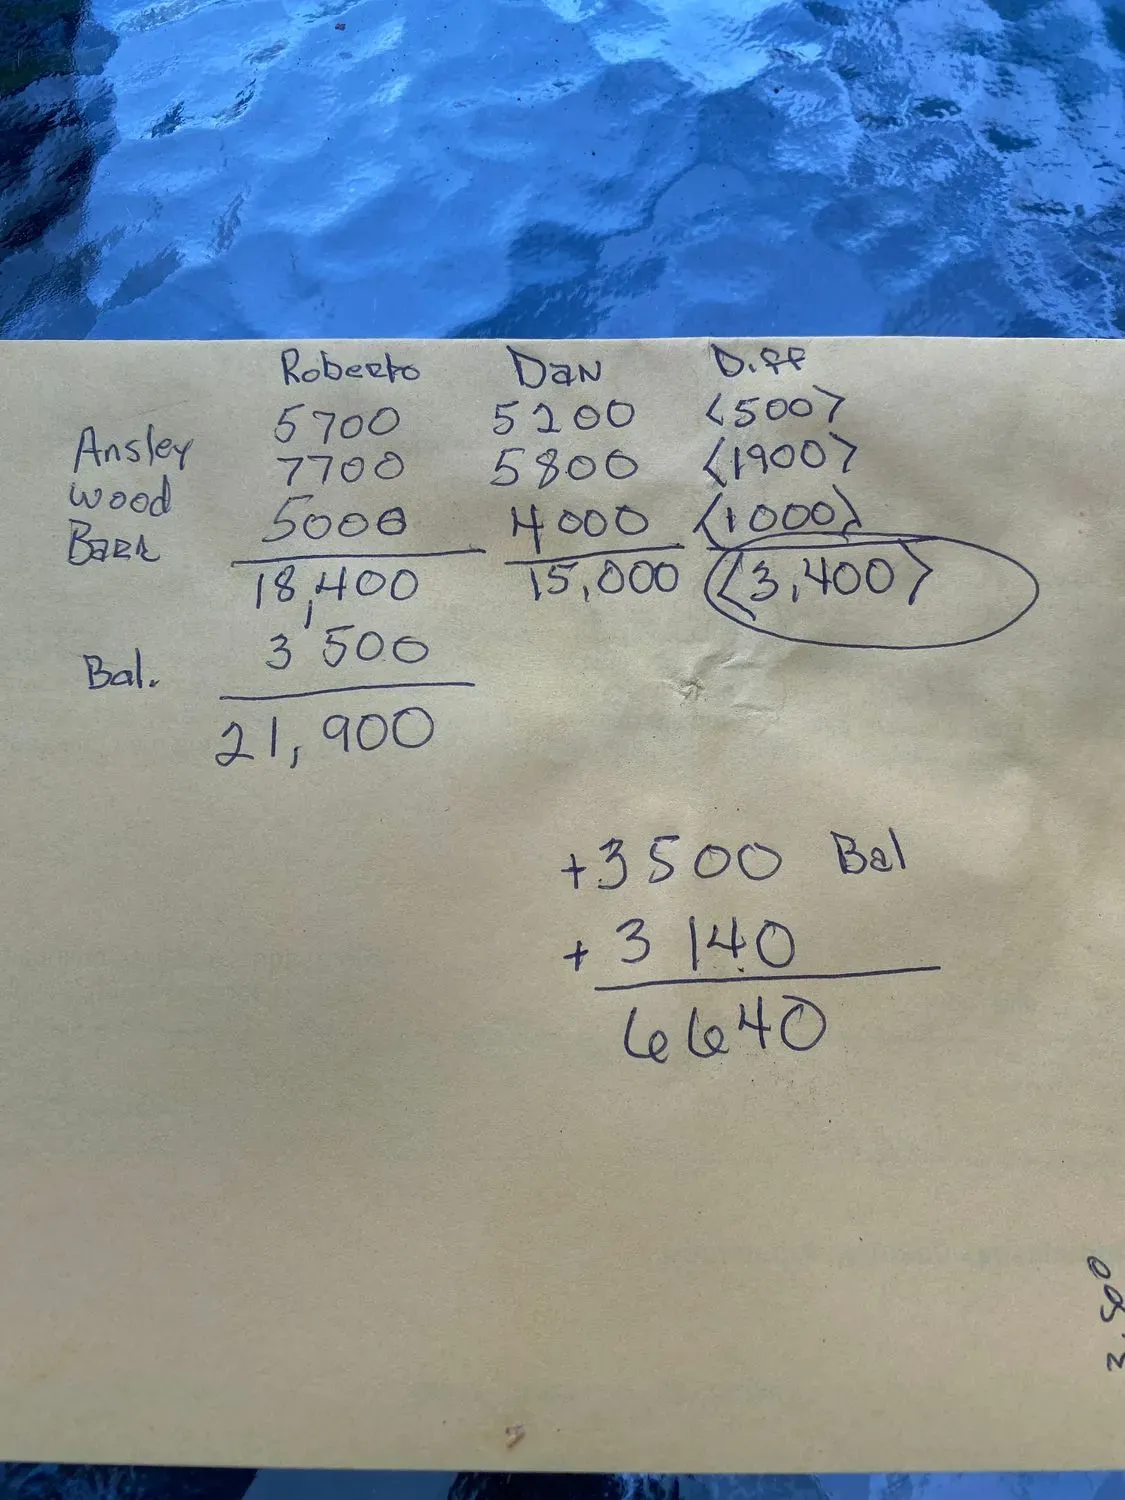 Roberto Dan Diff
Ansley 5700 5200 <500>
Wood 7700 5800 <1900>
Bark 5000 4000 <1000>
18,400 15,000 <3,400>
Bal. 3500
21,900
+3500 Bal
+3140
6640